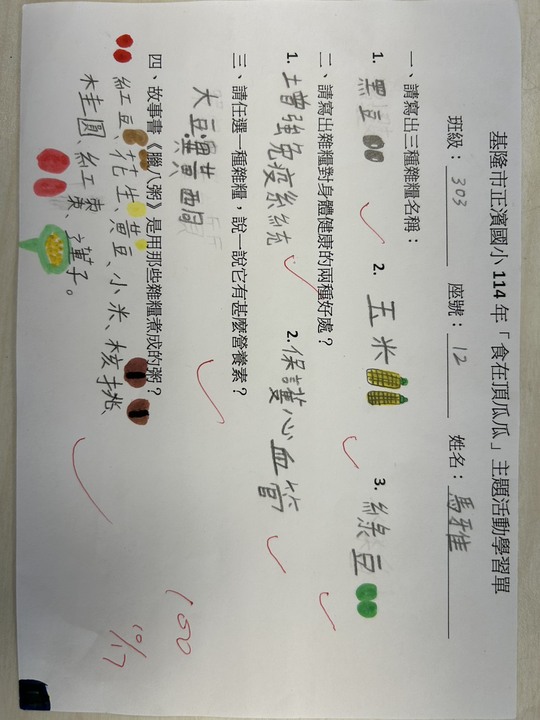 基隆市正濱國小 114 年「食在頂瓜瓜」主題活動學習單
班級：303 座號：12 姓名：馬雅
一、請寫出三種雜糧名稱：
1. 黑豆 2. 玉米 3. 綠豆
二、請寫出雜糧對身體健康的兩種好處？
1. 增強免疫系統 2. 保護心血管
三、請任選一種雜糧，說一說它有甚麼營養素？
大豆異黃酮
四、故事書《臘八粥》是用那些雜糧煮成的粥？
紅豆、花生、黃豆、小米、核挑、
桂圓、紅棗、蓮子。
100
10/17